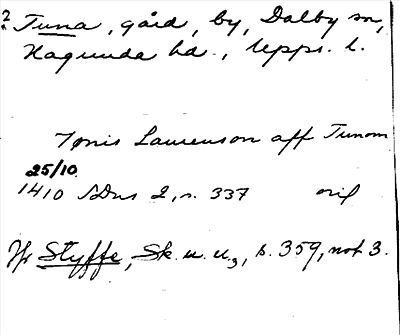 ? Tuna, gård, by, Dalby sn,
Hagunda hd., Upps. l.
Tönis Laurenson aff Tunom
25/10
1410 SDns 2, n. 337 orig
Jfr Styffe, Sk. u. u.3, s. 359, not 3.